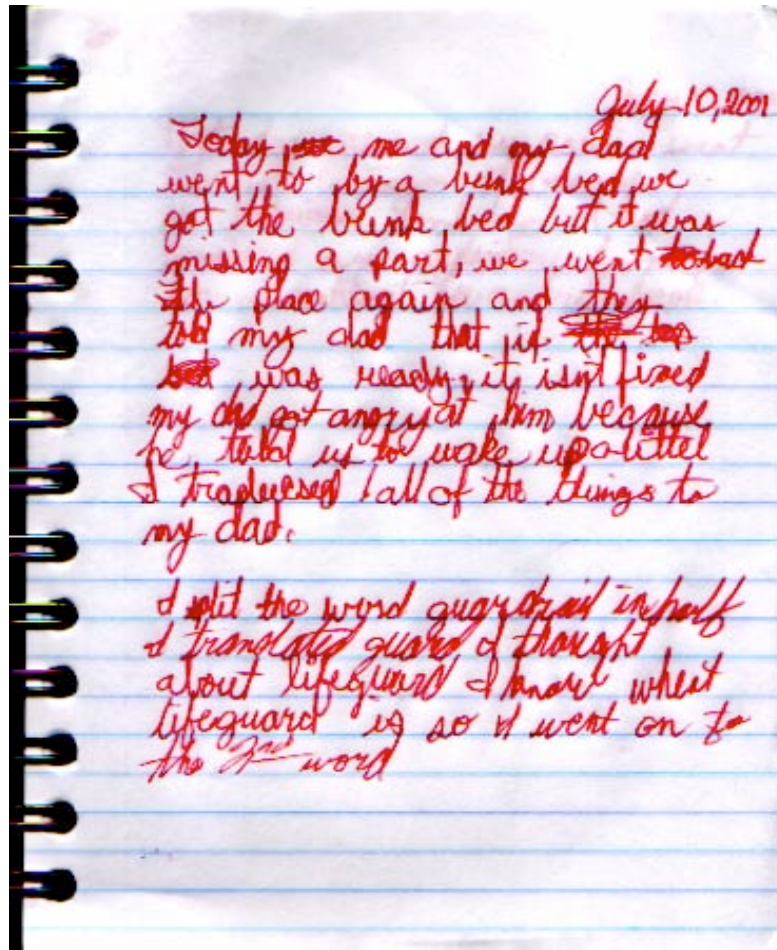 July 10, 2001
Today me and my dad
went to by a bunk bed we
got the bunk bed but it was
missing a part, we went back
the place again and they
told my dad that if
was ready, it isn't fixed
my dad got angry at him because
he told us to wake up a littel
I traducsed all of the things to
my dad.
I split the word guardrail in half
I translated guard I thought
about lifeguard I know what
lifeguard is so I went on to
the 2nd word